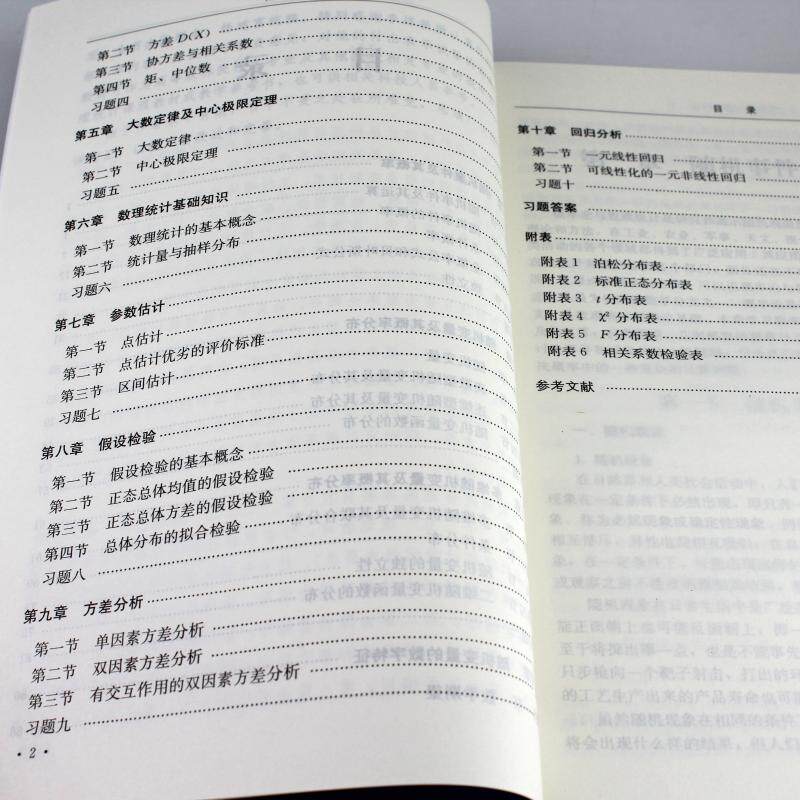 第二节 方差 D(X)
第三节 协方差与相关系数
第四节 矩、中位数
习题四
第五章 大数定律及中心极限定理
第一节 大数定律
第二节 中心极限定理
习题五
第六章 数理统计基础知识
第一节 数理统计的基本概念
第二节 统计量与抽样分布
习题六
第七章 参数估计
第一节 点估计
第二节 点估计优劣的评价标准
第三节 区间估计
习题七
第八章 假设检验
第一节 假设检验的基本概念
第二节 正态总体均值的假设检验
第三节 正态总体方差的假设检验
第四节 总体分布的拟合检验
习题八
第九章 方差分析
第一节 单因素方差分析
第二节 双因素方差分析
第三节 有交互作用的双因素方差分析
习题九
· 2 ·
目 录
第十章 回归分析
第一节 一元线性回归
第二节 可线性化的一元非线性回归
习题十
习题答案
附表
附表1 泊松分布表
附表2 标准正态分布表
附表3 t分布表
附表4 χ² 分布表
附表5 F分布表
附表6 相关系数检验表
参考文献